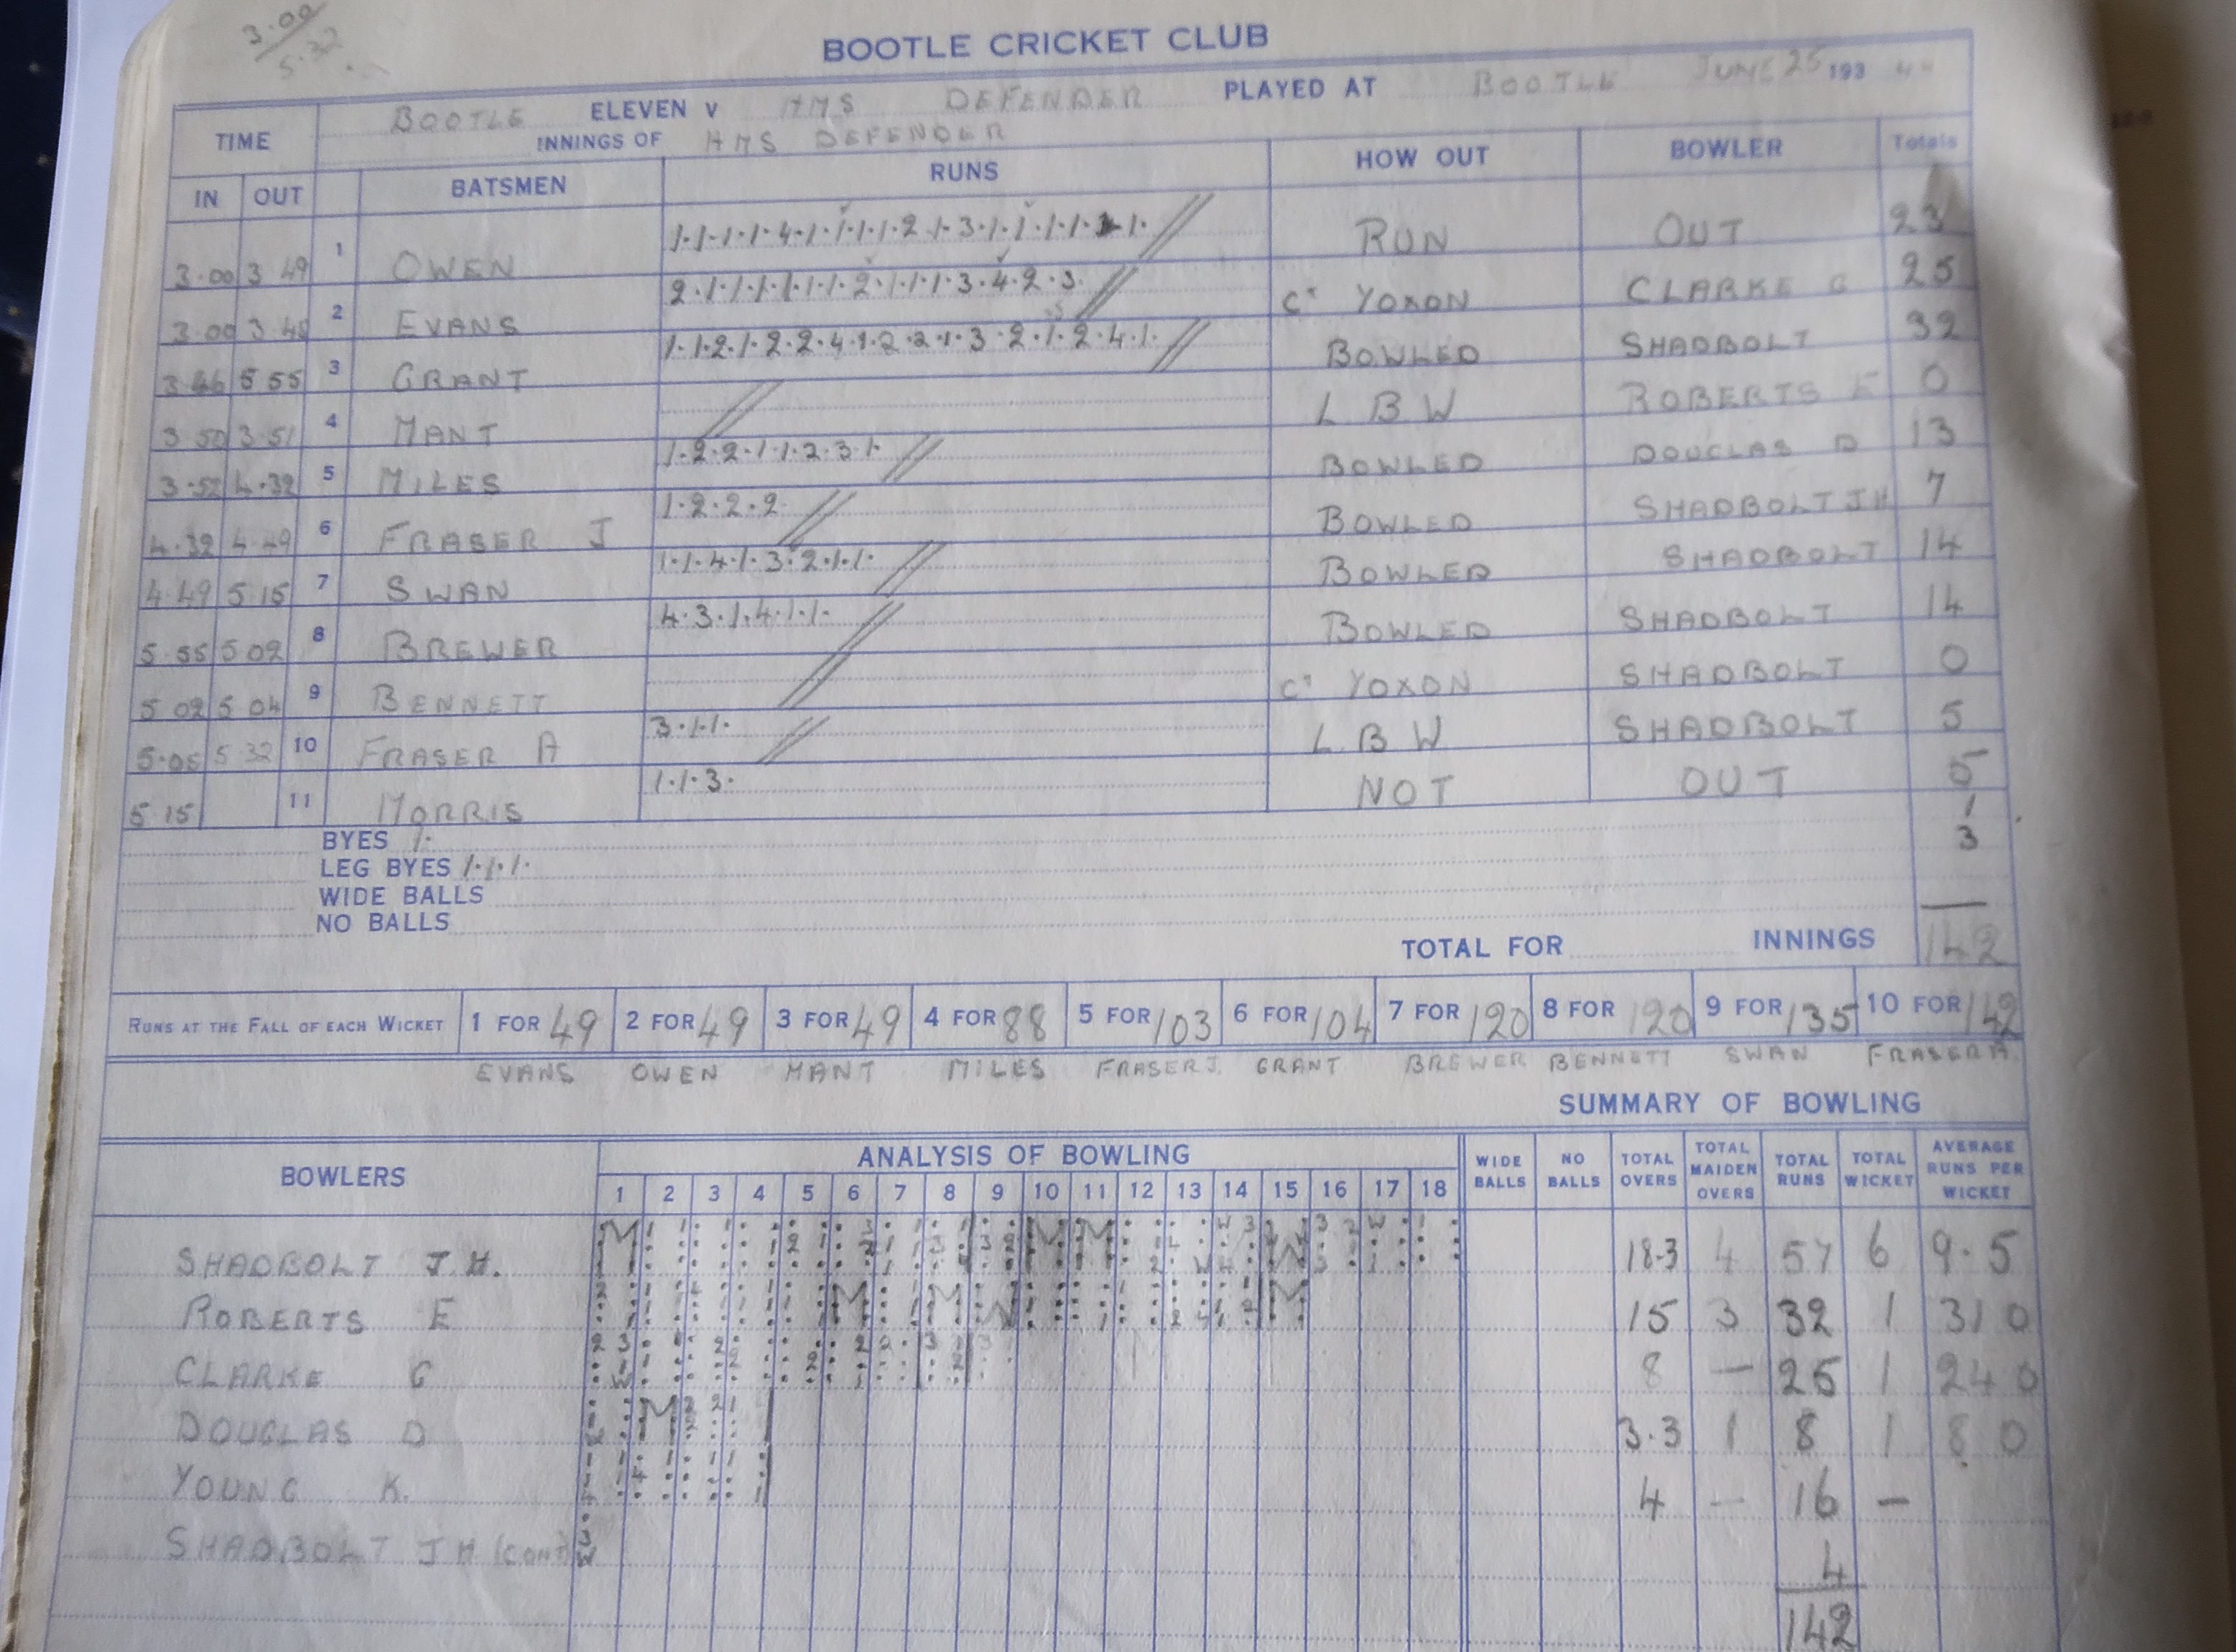 3.00
5.32
BOOTLE CRICKET CLUB
BOOTLE ELEVEN V HMS DEFENDER PLAYED AT BOOTLE JUNE 25 193 44
TIME INNINGS OF HMS DEFENDER
IN OUT BATSMEN RUNS HOW OUT BOWLER Totals
3.00 3 49 1 OWEN RUN OUT 23
3.00 3 2 EVANS 2.1.1.1.1.1.1.2.1.1.1.3.4.2.3. Ct YOXON CLARKE G 25
5 55 3 GRANT 1.1.2.1.2.2.4.1.2.2.1.3.2.1.2.4.1. BOWLED SHADBOLT 32
3 50 3.51 4 MANT L B W ROBERTS E 0
3.52 4.32 5 MILES 1.2.2.1.1.2.3.1. BOWLED DOUGLAS D 13
4.32 4.49 6 FRASER J 1.2.2.2. BOWLED SHADBOLT J H 7
4.49 5 15 7 SWAN 1.1.4.1.3.2.1.1. BOWLED SHADBOLT 14
5 55 5 02 8 BREWER 4.3.1.4.1.1. BOWLED SHADBOLT 14
5 02 5 04 9 BENNETT Ct YOXON SHADBOLT 0
5.05 5 32 10 FRASER A 3.1.1. L B W SHADBOLT 5
5 15 11 MORRIS 1.1.3. NOT OUT 5
BYES 1. 1
LEG BYES 1.1.1. 3
WIDE BALLS
NO BALLS
TOTAL FOR INNINGS 142
RUNS AT THE FALL OF EACH WICKET 1 FOR 49 2 FOR 49 3 FOR 49 4 FOR 88 5 FOR 103 6 FOR 104 7 FOR 120 8 FOR 120 9 FOR 135 10 FOR 142
EVANS OWEN MANT MILES FRASER J. GRANT BREWER BENNETT SWAN FRASER A.
SUMMARY OF BOWLING
BOWLERS ANALYSIS OF BOWLING WIDE BALLS NO BALLS TOTAL OVERS TOTAL MAIDEN OVERS TOTAL RUNS TOTAL WICKET AVERAGE RUNS PER WICKET
1 2 3 4 5 6 7 8 9 10 11 12 13 14 15 16 17 18
SHADBOLT J.H. 18.3 4 57 6 9.5
ROBERTS E 15 3 32 1 31 0
CLARKE G 8 — 25 1 24 0
DOUGLAS D 3.3 1 8 1 8 0
YOUNG K. 4 — 16 —
SHADBOLT J H (CONT) 4
142